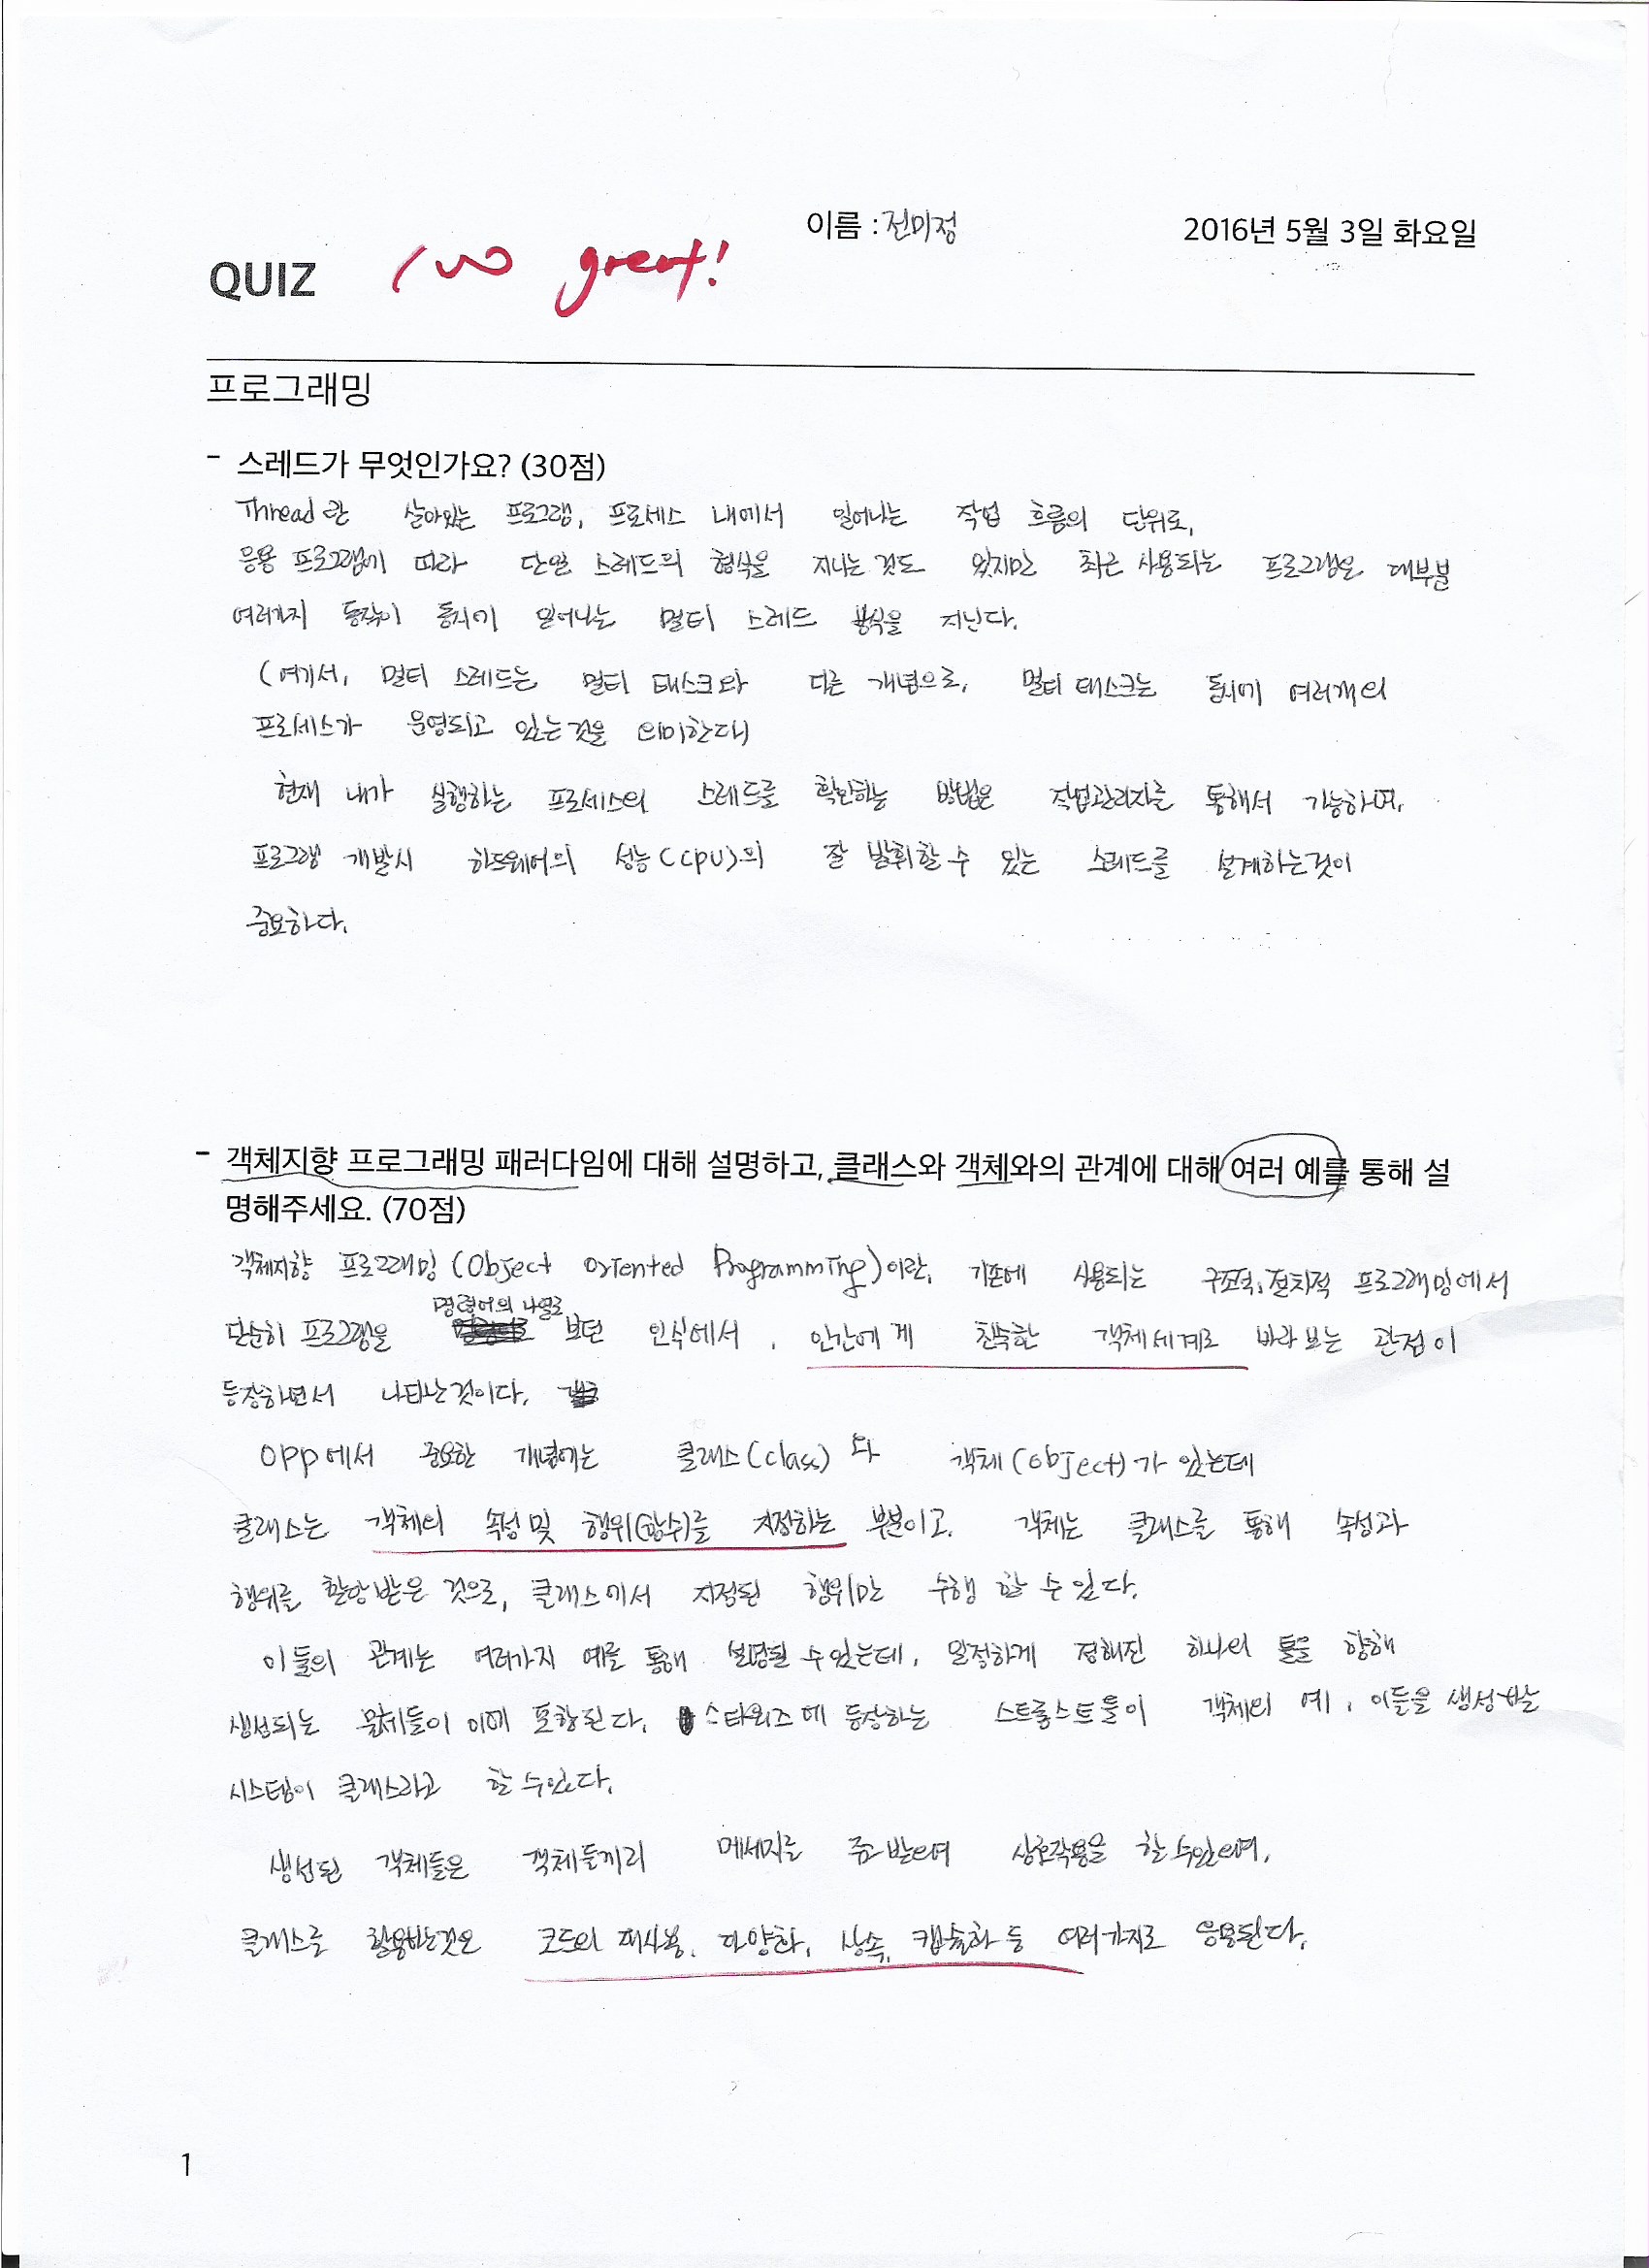 이름 : 전미정
2016년 5월 3일 화요일
QUIZ
100 great!
프로그래밍
- 스레드가 무엇인가요? (30점)
Thread란 살아있는 프로그램, 프로세스 내에서 일어나는 작업 흐름의 단위로,
응용 프로그램에 따라 단일 스레드의 형식을 지니는 것도 있지만 최근 사용되는 프로그램은 대부분
여러가지 동작이 동시에 일어나는 멀티 스레드 형식을 지닌다.
(여기서, 멀티 스레드는 멀티 태스크와 다른 개념으로, 멀티 태스크는 동시에 여러개의
프로세스가 운영되고 있는 것을 의미한다)
현재 내가 실행하는 프로세스의 스레드를 확인하는 방법은 작업관리자를 통해서 가능하며,
프로그램 개발시 하드웨어의 성능(CPU)의 잘 발휘할 수 있는 스레드를 설계하는것이
중요하다.
- 객체지향 프로그래밍 패러다임에 대해 설명하고, 클래스와 객체와의 관계에 대해 여러 예를 통해 설
명해주세요. (70점)
객체지향 프로그래밍 (Object oriented Programming)이란, 기존에 사용되는 구조적, 절차적 프로그래밍에서
단순히 프로그램을 명령어의 나열로 보던 인식에서, 인간에게 친숙한 객체세계로 바라보는 관점이
등장하면서 나타난것이다.
OPP에서 중요한 개념에는 클래스(class)와 객체(object)가 있는데
클래스는 객체의 속성 및 행위(함수)를 지정하는 부분이고, 객체는 클래스를 통해 속성과
행위를 할당받은 것으로, 클래스에서 지정된 행위만 수행 할 수 있다.
이 둘의 관계는 여러가지 예를 통해 설명될 수있는데, 일정하게 정해진 하나의 틀을 향해
생성되는 물체들이 이에 포함된다. 스타워즈에 등장하는 스트롱스트룹이 객체의 예, 이들을 생성하는
시스템이 클래스라고 할 수있다.
생성된 객체들은 객체들끼리 메세지를 주고 받으며 상호작용을 할 수있으며,
클래스를 활용하는것은 코드의 재사용, 다양화, 상속, 캡슐화 등 여러가지로 응용된다.
1